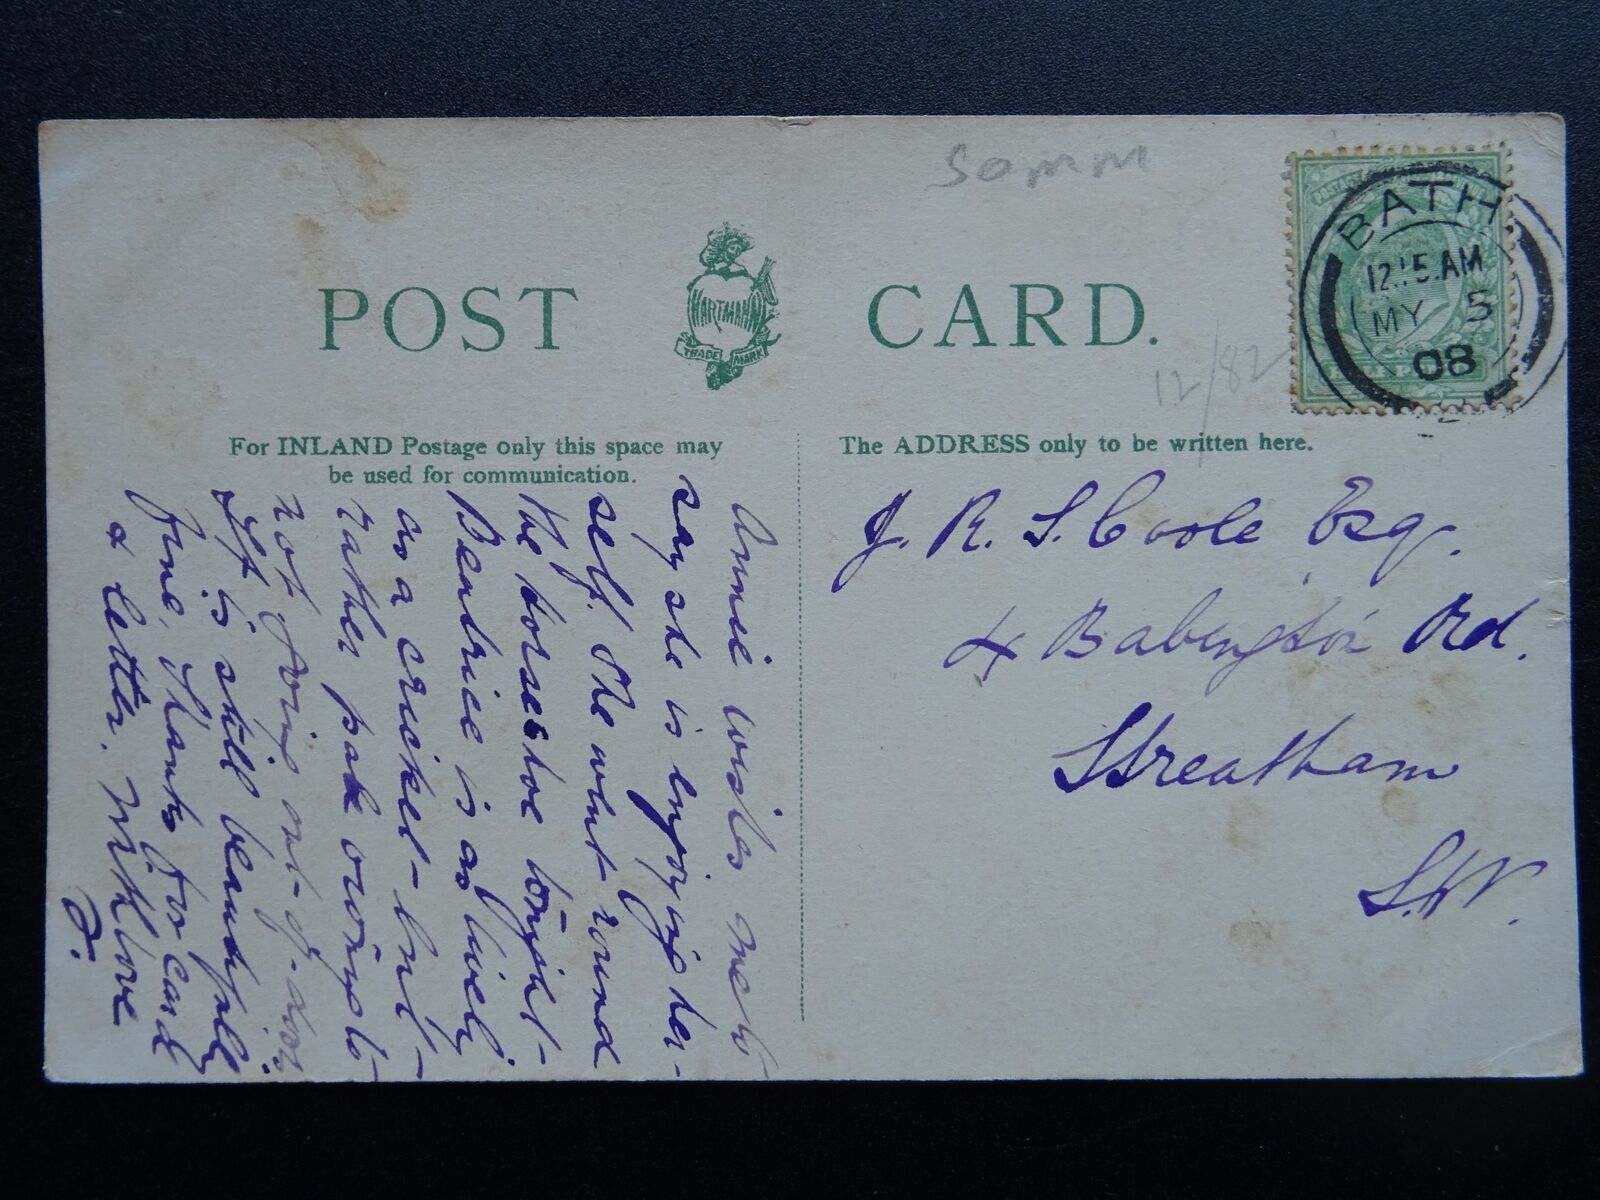 Somm
POST CARD.
HARTMANN
TRADE MARK
BATH
12.15.AM
MY 5
08
12/82
For INLAND Postage only this space may
be used for communication.
The ADDRESS only to be written here.
J. R. S. Coole Esq.
4 Babington Rd.
Streatham
S.W.
Annie wishes me to
say she is enjoying her-
self. She went round
the horseshoe tonight-
Beatrice is as lively
as a cricket- but-
rather pale owing to
not going out-of-doors
It is still beautifully
fine. Thanks for card
& letter. With love
F.